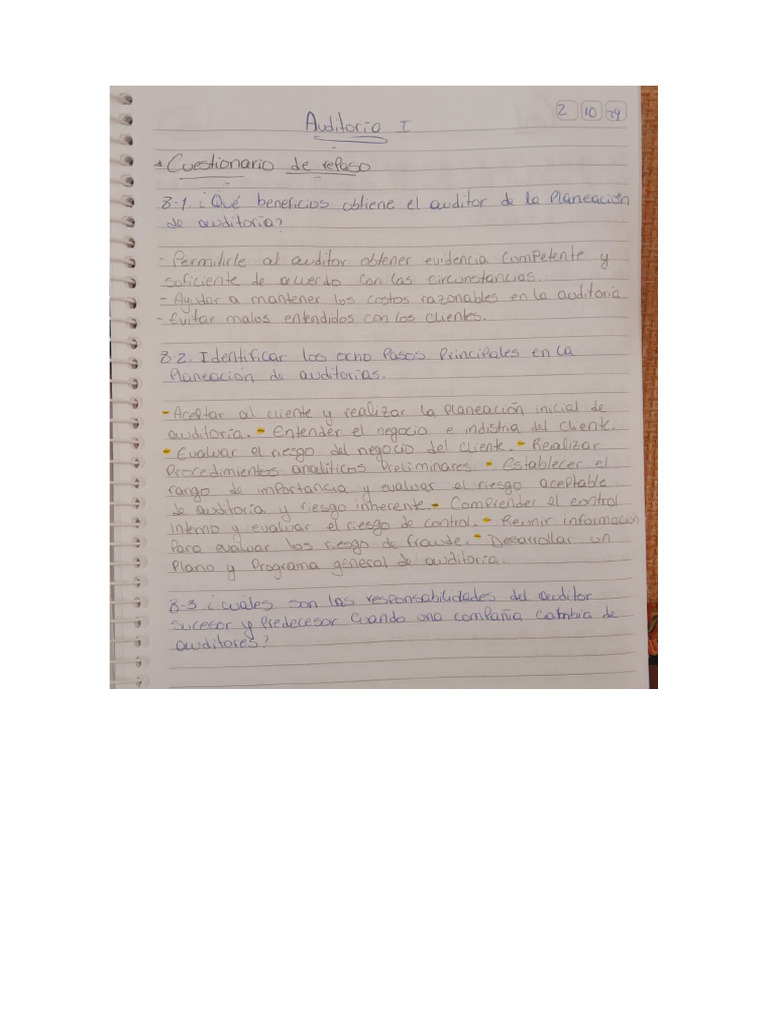 Auditoria I
2 10 24
* Cuestionario de repaso
8-1 ¿Qué beneficios obtiene el auditor de la Planeación
de auditoria?
- Permitirle al auditor obtener evidencia competente y
suficiente de acuerdo con las circunstancias.
- Ayudar a mantener los costos razonables en la auditoria.
- Evitar malos entendidos con los clientes.
8-2. Identificar los ocho Pasos Principales en la
Planeación de auditorias.
- Aceptar al cliente y realizar la Planeación inicial de
auditoria. - Entender el negocio e indistria del cliente.
- Evaluar el riesgo del negocio del cliente. - Realizar
Procedimientos analíticos Preliminares. - Establecer el
rango de importancia y evaluar el riesgo aceptable
de auditoria y riesgo inherente. - Comprender el control
Interno y evaluar el riesgo de control. - Reunir información
Para evaluar los riesgo de fraude. - Desarrollar un
Plano y Programa general de auditoria.
8-3 ¿cuáles son las responsabilidades del auditor
sucesor y Predecesor cuando una compañia cambia de
auditores?